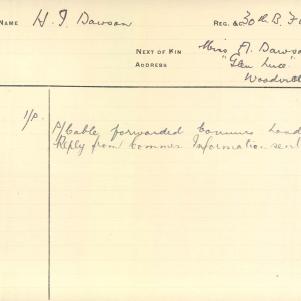 NAME H. I. Dawson REG. & 30th B.
NEXT OF KIN Miss A. Dawson
ADDRESS "Glen Luce"
Woodville
1/P. P/Cable forwarded Commrs
Reply from Commrs Information sent